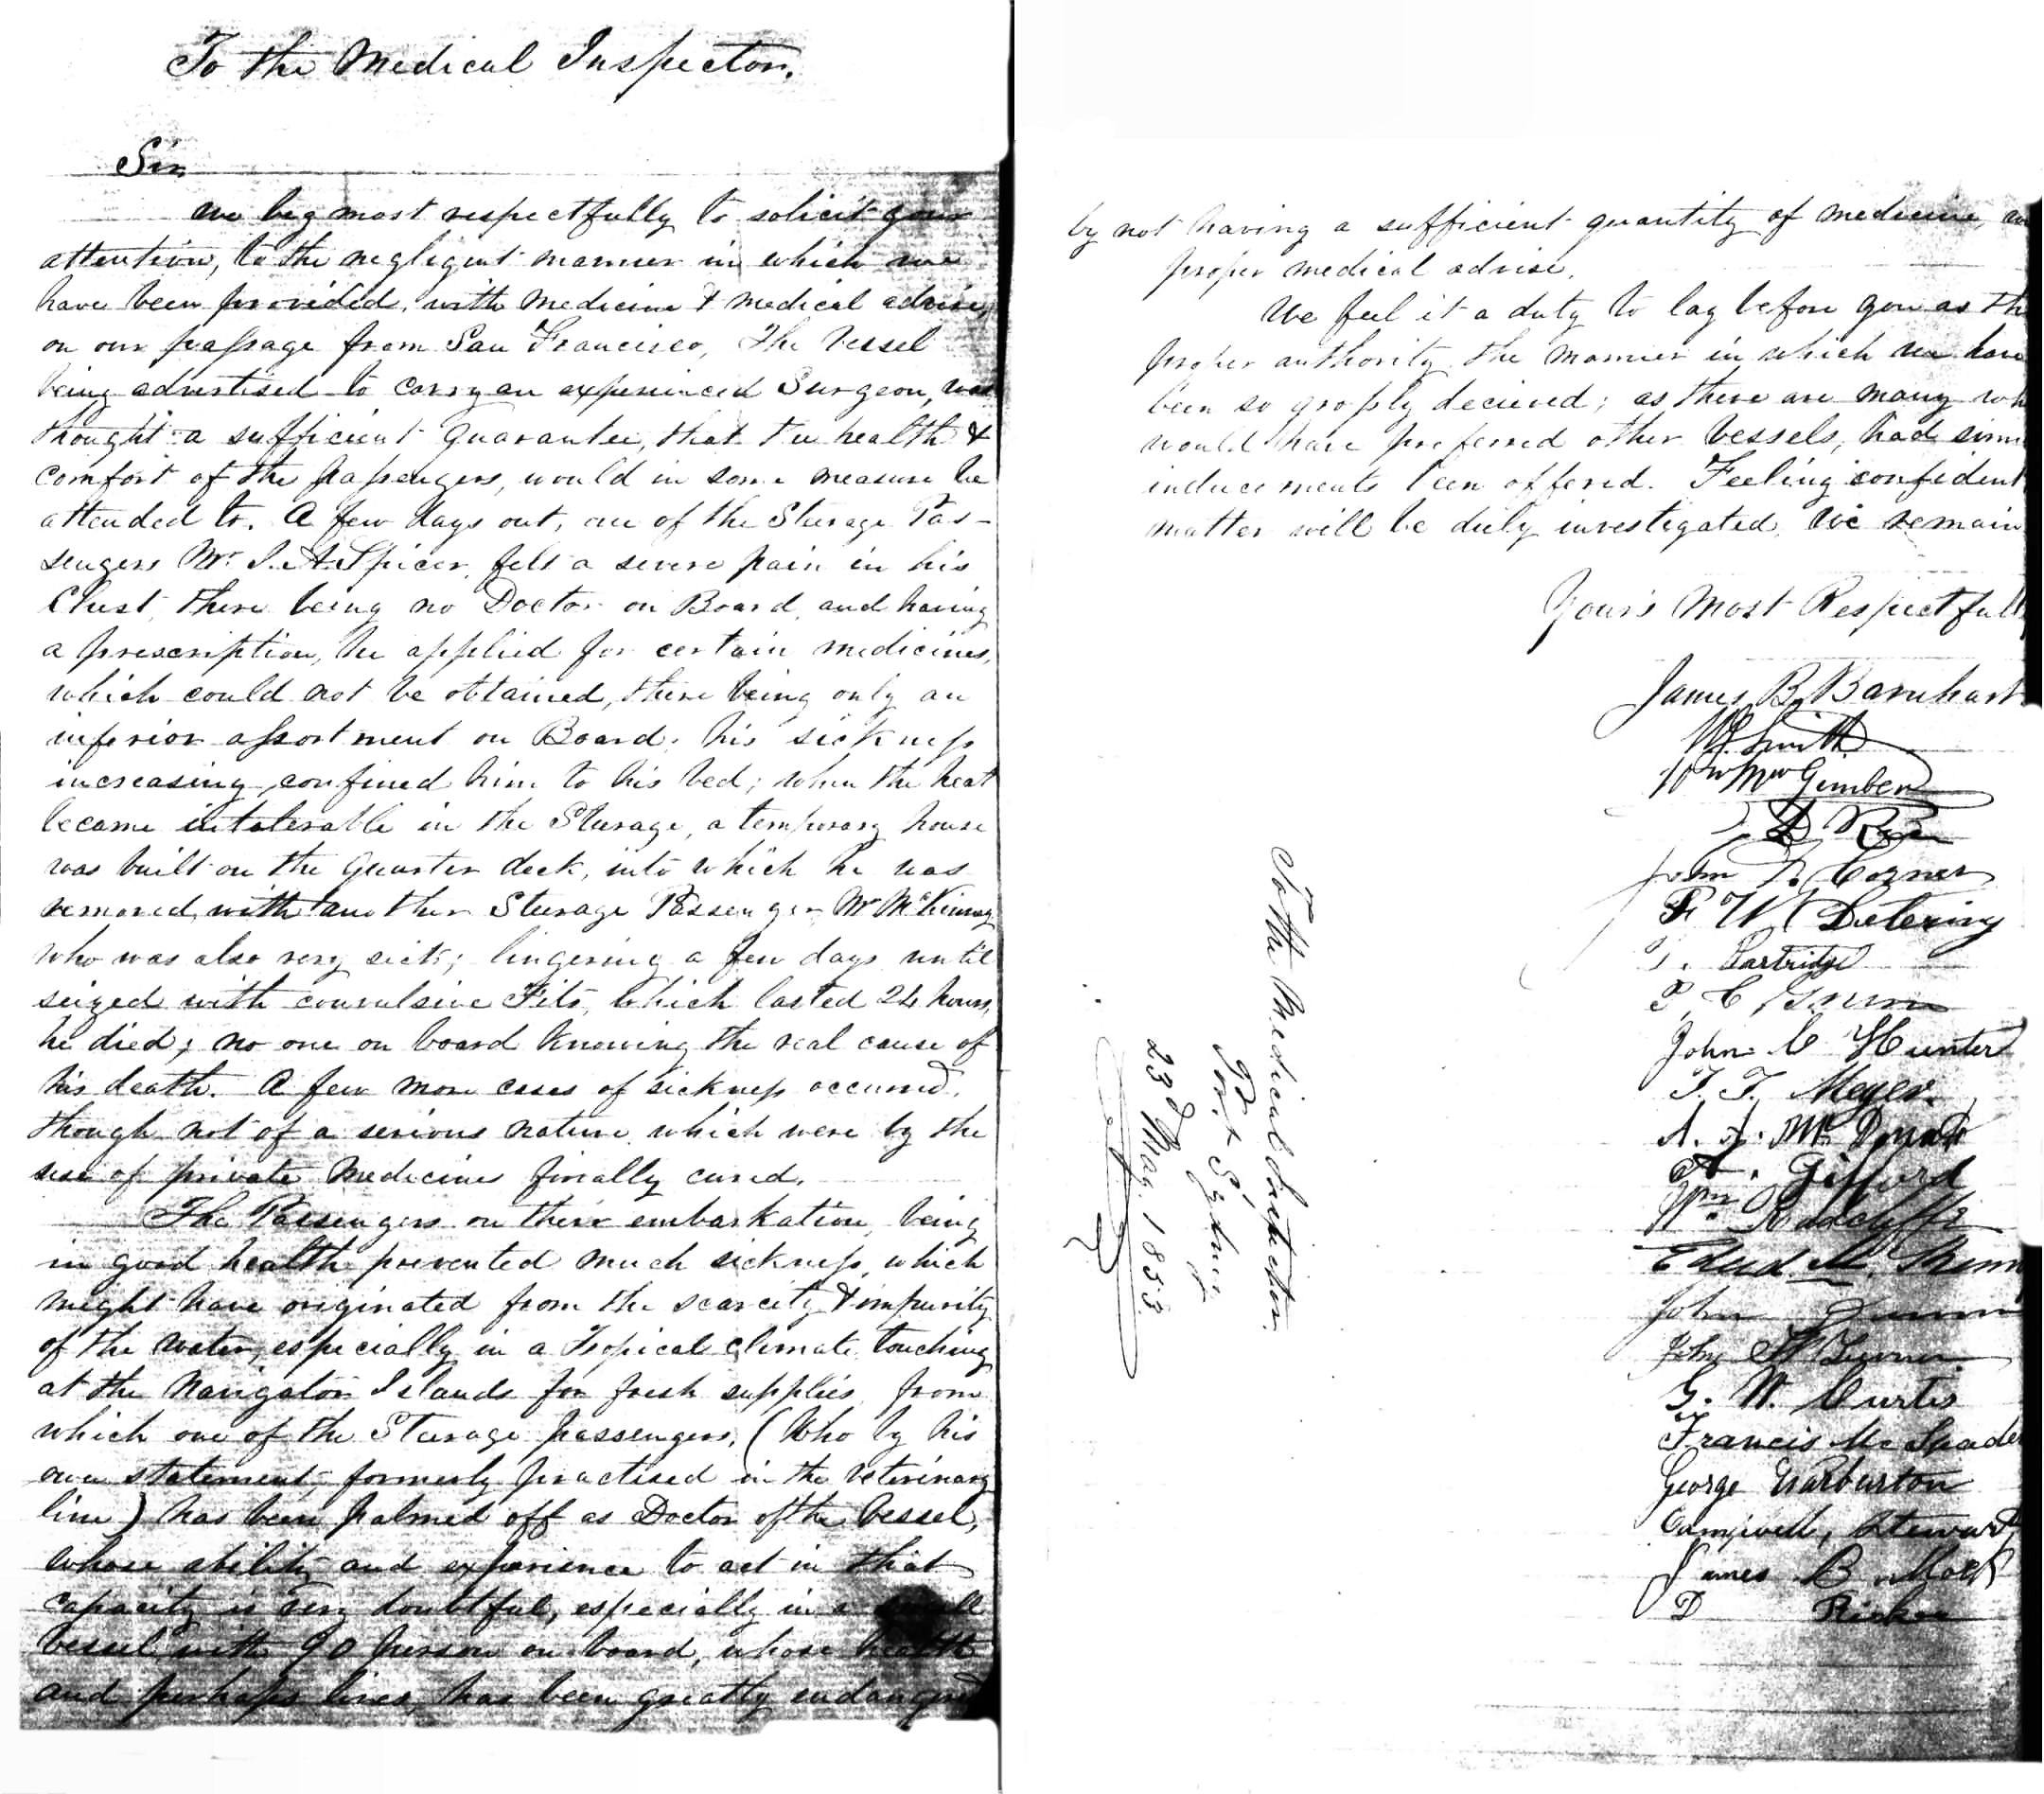 To the Medical Inspector.
Sir
We beg most respectfully to solicit your
attention, to the negligent manner in which we
have been provided, with Medicine & medical advise,
on our passage from San Francisco, The Vessel
being advertised to carry an experienced Surgeon, was
thought a sufficient guarantee, that the health &
comfort of the passengers, would in some measure be
attended to. A few days out, one of the Sterage Pas-
sengers Mr. J. A. Spicer, felt a severe pain in his
Chest, there being no Doctor on Board, and having
a prescription, he applied for certain medicines,
which could not be obtained, there being only an
inferior assortment on Board. his sickness
increasing, confined him to his bed; when the heat
became intolerable in the Sterage, a temporary house
was built on the Quarter deck, into which he was
removed, with another Sterage Passenger Mr McKinney
who was also very sick; lingering a few days until
seized with convulsive Fits, which lasted 24 hours,
he died; no one on board knowing the real cause of
his death. A few more cases of sickness occurred,
though not of a serious nature, which were by the
use of private Medicines finally cured.
The Passengers on their embarkation, being
in good health prevented much sickness, which
might have originated from the scarcity & impurity
of the water, especially in a Tropical climate, touching
at the Navigators Islands for fresh supplies, from
which one of the Sterage passengers, (Who by his
own statement, formerly practised in the veterinary
line) has been palmed off as Doctor of the Vessel,
whose ability and experience to act in that
capacity is very doubtful, especially in a small
vessel with 90 person on board, whose health
and perhaps lives, has been greatly endangered
by not having a sufficient quantity of medicine,
proper medical advise.
We feel it a duty to lay before you as th
proper authority, the manner in which we have
been so grossly decieved; as there are many wh
would have preferred other Vessels, had simi
inducements been offered. Feeling confident
matter will be duly investigated, We remain
Your's Most Respectfull
James B. Barnhart
W. Smith
Wm McGimben
D
John Cosner
F W Detering
J. Partridge
P. C.
John C Hunter
T. T. Meyer.
A. J. McDonald
A. Gifford
Wm Radclyffe
Edwd M.
John
John
G. W. Curtis
Francis McSpade
George Warburton
Campbell, Stewart,
James B. Mock
D
To the Medical Inspector
Port Sydney
23d May. 1853